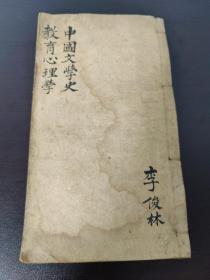 中國文學史
教育心理學
李俊林